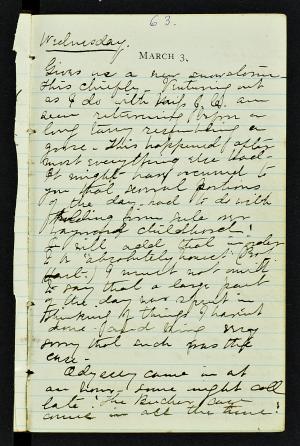 63.
Wednesday.
MARCH 3.
Gives us a new snowstorm.
This chiefly returning out
as I do with Miss J. A. and
seen returning from a
long
goose. This happened after
most everything else had.
It might have occurred to
you that several portions
of the day had to do with
from
childhood!
I will add that in order
to be "absolutely honest"
I must not omit
to say that a large part
of the day was spent in
thinking of things I haven't
done and being very
sorry that such was the
case.
Odyssey came in at
an hour some might call
late! The Butcher
come in all the time!